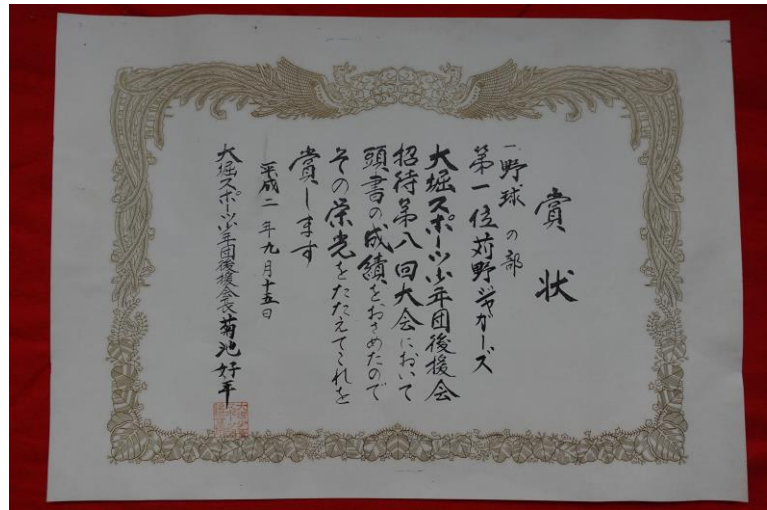 賞状
一野球の部
第一位苅野ジャガーズ
大堀スポーツ少年団後援会
招待第八回大会において
頭書の成績をおさめたので
その栄光をたたえてこれを
賞します
平成二年九月十五日
大堀スポーツ少年団後援会長菊池好平